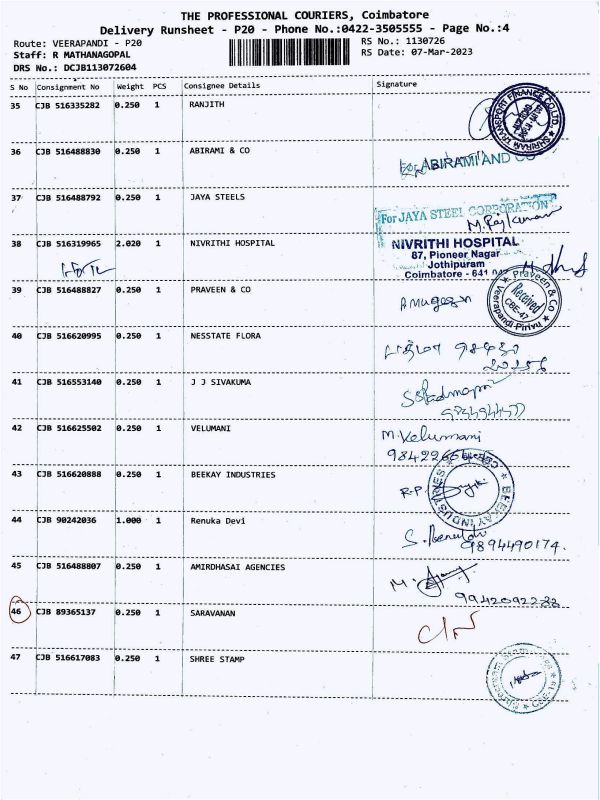 THE PROFESSIONAL COURIERS, Coimbatore
Delivery Runsheet - P20 - Phone No.:0422-3505555 - Page No.:4
Route: VEERAPANDI - P20 RS No.: 1130726
Staff: R MATHANAGOPAL RS Date: 07-Mar-2023
DRS No.: DCJB113072604
S No Consignment No Weight PCS Consignee Details Signature
35 CJB 516335282 0.250 1 RANJITH
SHRIRAM TRANSPORT FINANCE CO LTD.
36 CJB 516488830 0.250 1 ABIRAMI & CO
For ABIRAMI AND CO
37 CJB 516488792 0.250 1 JAYA STEELS
For JAYA STEEL CORPORATION
M. Rajkumar
38 CJB 516319965 2.020 1 NIVRITHI HOSPITAL
NIVRITHI HOSPITAL
87, Pioneer Nagar
Jothipuram
Coimbatore - 641
39 CJB 516488827 0.250 1 PRAVEEN & CO
Praveen & Co
Received
CBE-47
Veerapandi Pirivu
40 CJB 516620995 0.250 1 NESSTATE FLORA
41 CJB 516553140 0.250 1 J J SIVAKUMA
42 CJB 516625502 0.250 1 VELUMANI
M. Velumani
43 CJB 516620888 0.250 1 BEEKAY INDUSTRIES
R.P.
BEEKAY INDUSTRIES
44 CJB 90242036 1.000 1 Renuka Devi
9894490174.
45 CJB 516488807 0.250 1 AMIRDHASAI AGENCIES
46 CJB 89365137 0.250 1 SARAVANAN
47 CJB 516617083 0.250 1 SHREE STAMP